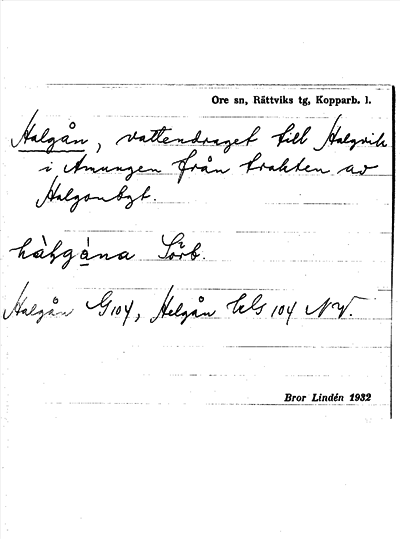 Ore sn, Rättviks tg, Kopparb. l.
Halgån, vattendraget till Halgvik
i Amungen från trakten av
Halgonbgt.
hàḷgȧ̱na Sörb.
Halgån G104, Helgån Gls 104 NV.
Bror Lindén 1932